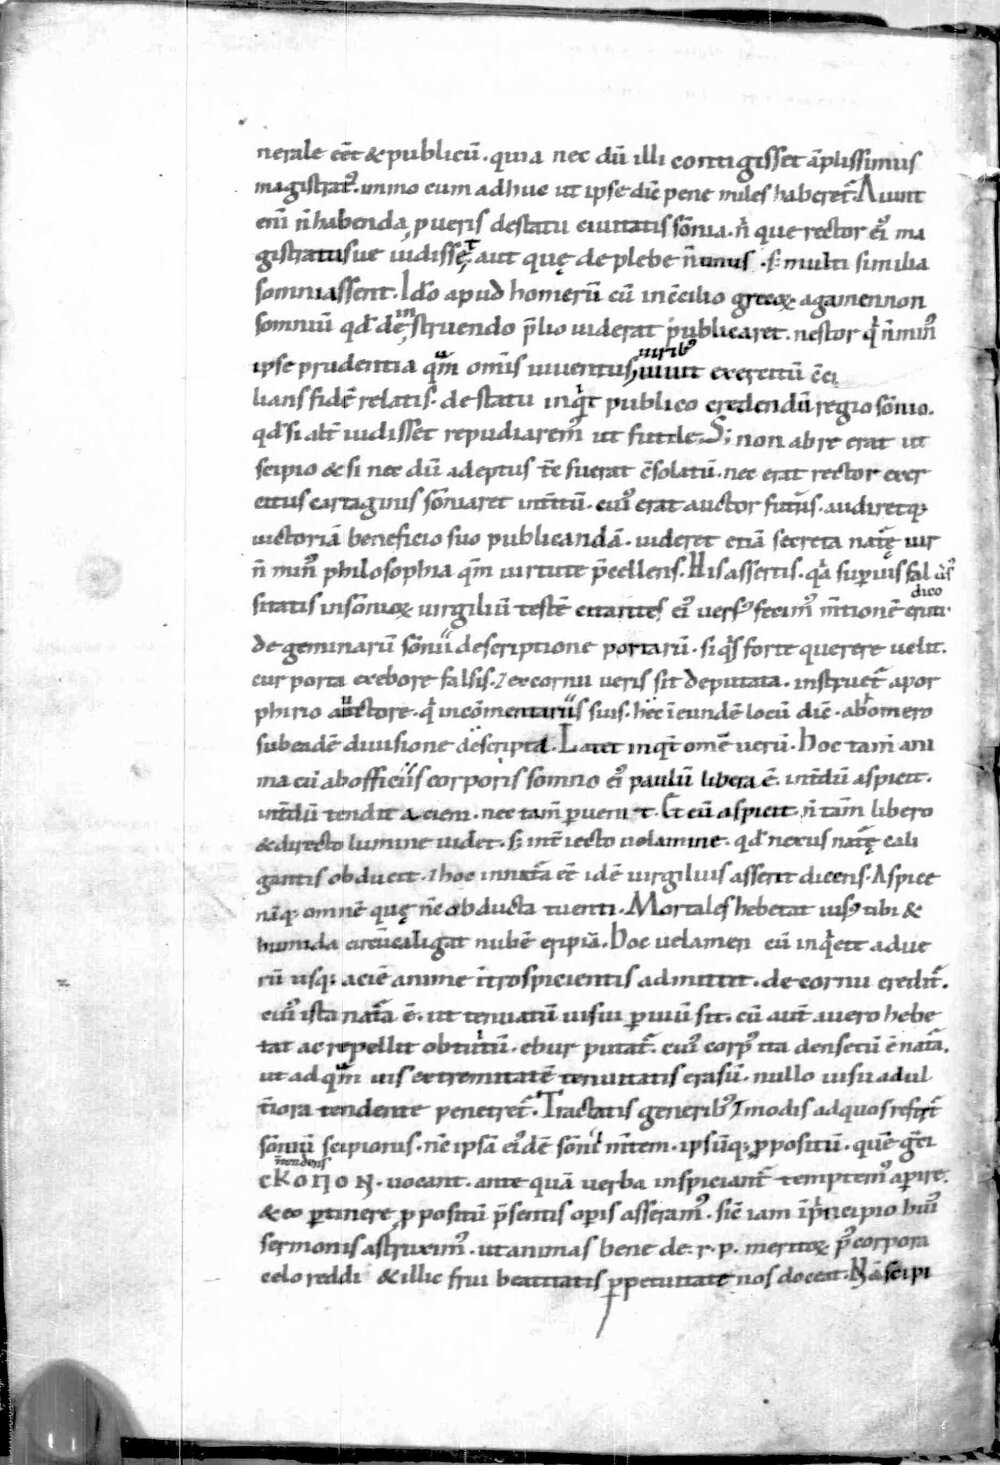 nerale eēt & publicū. quia nec dū illi contigisset āplissimus
magistratꝰ. immo cum adhuc ut ipse diē pene miles haberet᷑. Aiunt
eni᷑ n̄ habenda pueris de statu ciuitatis sōnia. n̄ que rector eiꝰ ma
gistratusue uidisset. aut quę de plebe n̄ unus. s; multi similia
somniassent. Ido apud homerū cū in c̄cilio grecoꝝ agamennon
somniū qd̄ de instruendo p̄lio uiderat publicaret. nestor qͥ n̄ minꝰ
ipse prudentia qͣm omīs iuuentus uiribꝰ iuuit exercitū c̄ci
lians fidē relatis. de statu inqͥt publico credendū regio sōnio.
qd̄ si alt᷑ uidisset repudiaremꝰ ut futile. S; non ab re erat ut
scipio & si nec dū adeptus tc̄ fuerat c̄solatū. nec erat rector exer
citus cartaginis sōniaret int᷑itū. cuiꝰ erat auctor futurꝰ. audiretq;
uictoriā beneficio suo publicandā. uideret etiā secreta natę uir
n̄ minꝰ philosophia qͣm uirtute p̄cellens. His assertis. qͣ superius fal
sitatis insōnioꝝ uirgiliū testē citantes eiꝰ uersꝰ fecimꝰ m̄tionē eruti
dico
de geminarū sōnii descriptione portarū. siqͥs forte querere uelit.
cur porta ex ebore falsis. ⁊ e cornu ueris sit deputata. instruet᷑ a por
phirio auctore. qͥ in cōmentariis suis. hec ī eundē locū diē. ab homero
sub eadē diuisione descripta. Latet inqͥt omē uerū. Hoc tam̄ ani
ma cū ab officiis corporis somno eiꝰ paulū libera ē. int᷑dū aspicit.
int᷑dū tendit aciem. nec tam̄ peruenit. Et cū aspicit. n̄ tam̄ libero
& directo lumine uidet. s; int᷑iecto uelamine. qd̄ nexus natę cali
gantis obducit. ⁊ hoc in nat᷑a eē idē uirgilius asserit dicens. Aspice
nāq; omnē quę nc̄ obducta tuenti. Mortales hebetat uisꝰ tibi &
humida circū caligat nubē eripiā. Hoc uelamen cū inqͥete ad ue
rū usq; aciē anime īt᷑ospicientis admittit. de cornu credit᷑.
cuiꝰ ista nat᷑a ē. ut tenuatū uisui peruiū sit. cū aut᷑ a uero hebe
tat ac repellit obtutū. ebur putat᷑. cuiꝰ corpꝰ ita densetū ē nat᷑a.
ut ad qͣmuis extremitatē tenuitatis erasū. nullo uisu ad ul
t᷑iora tendente penetret᷑. Tractatis generibꝰ ⁊ modis ad quos refert᷑
sōniū scipionis. nc̄ ipsā eiꝰdē sōnii m̄tem. ipsūq; ꝓpositū. quē gr̄ci
m̄tendens
cKOΠON. uocant. ante quā uerba inspiciant᷑ temptemꝰ aperire.
& eo pertinere ꝓpositū p̄sentis operis asseramꝰ. sic̄ iam īpͥncipio huiꝰ
sermonis astruximꝰ. ut animas bene de. r. p. meritoꝝ pꝰ corpora
celo reddi & illic frui beatitatis perpetuitate nos doceat. Nā scipi